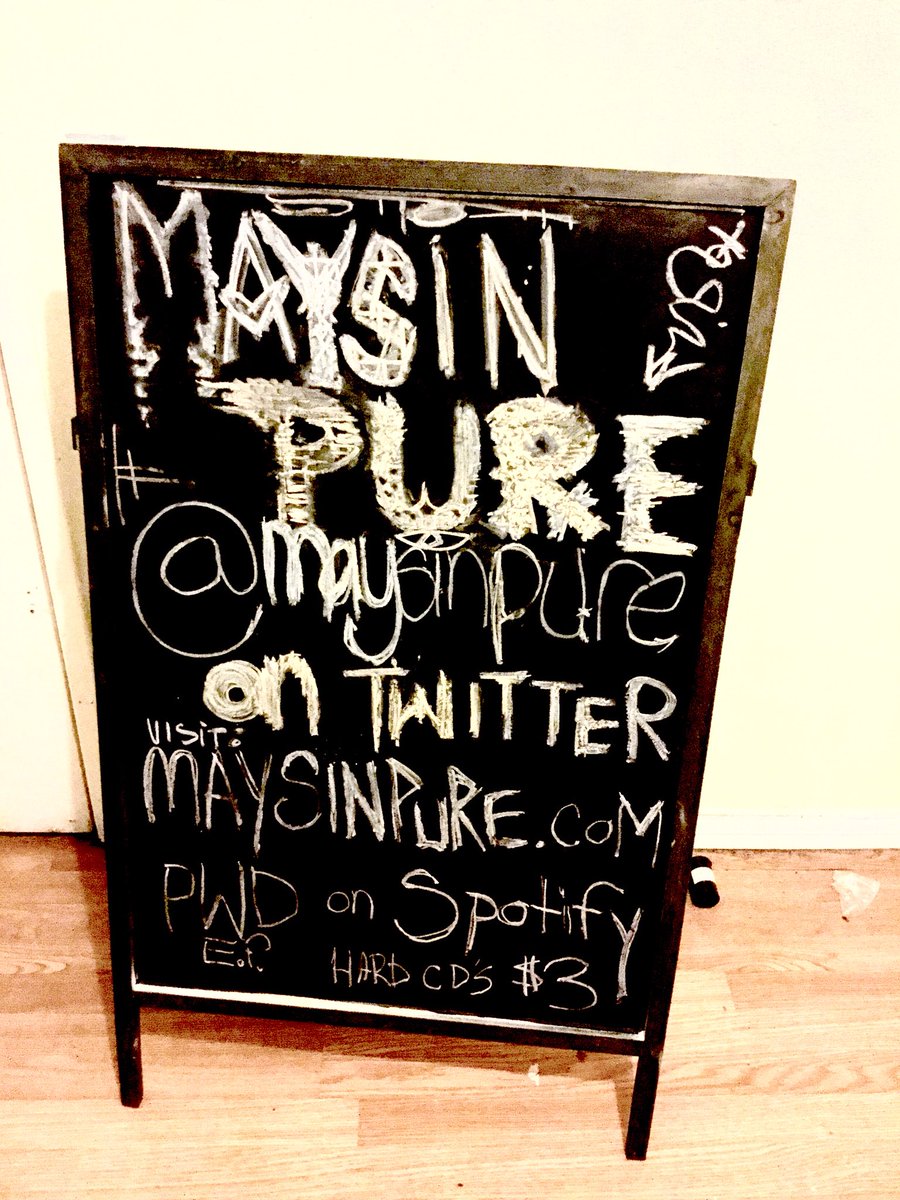 MAYSIN
PURE
@maysinpure
on TWITTER
VISIT:
MAYSINPURE.COM
PWD on Spotify
E.P.
HARD CD'S $3